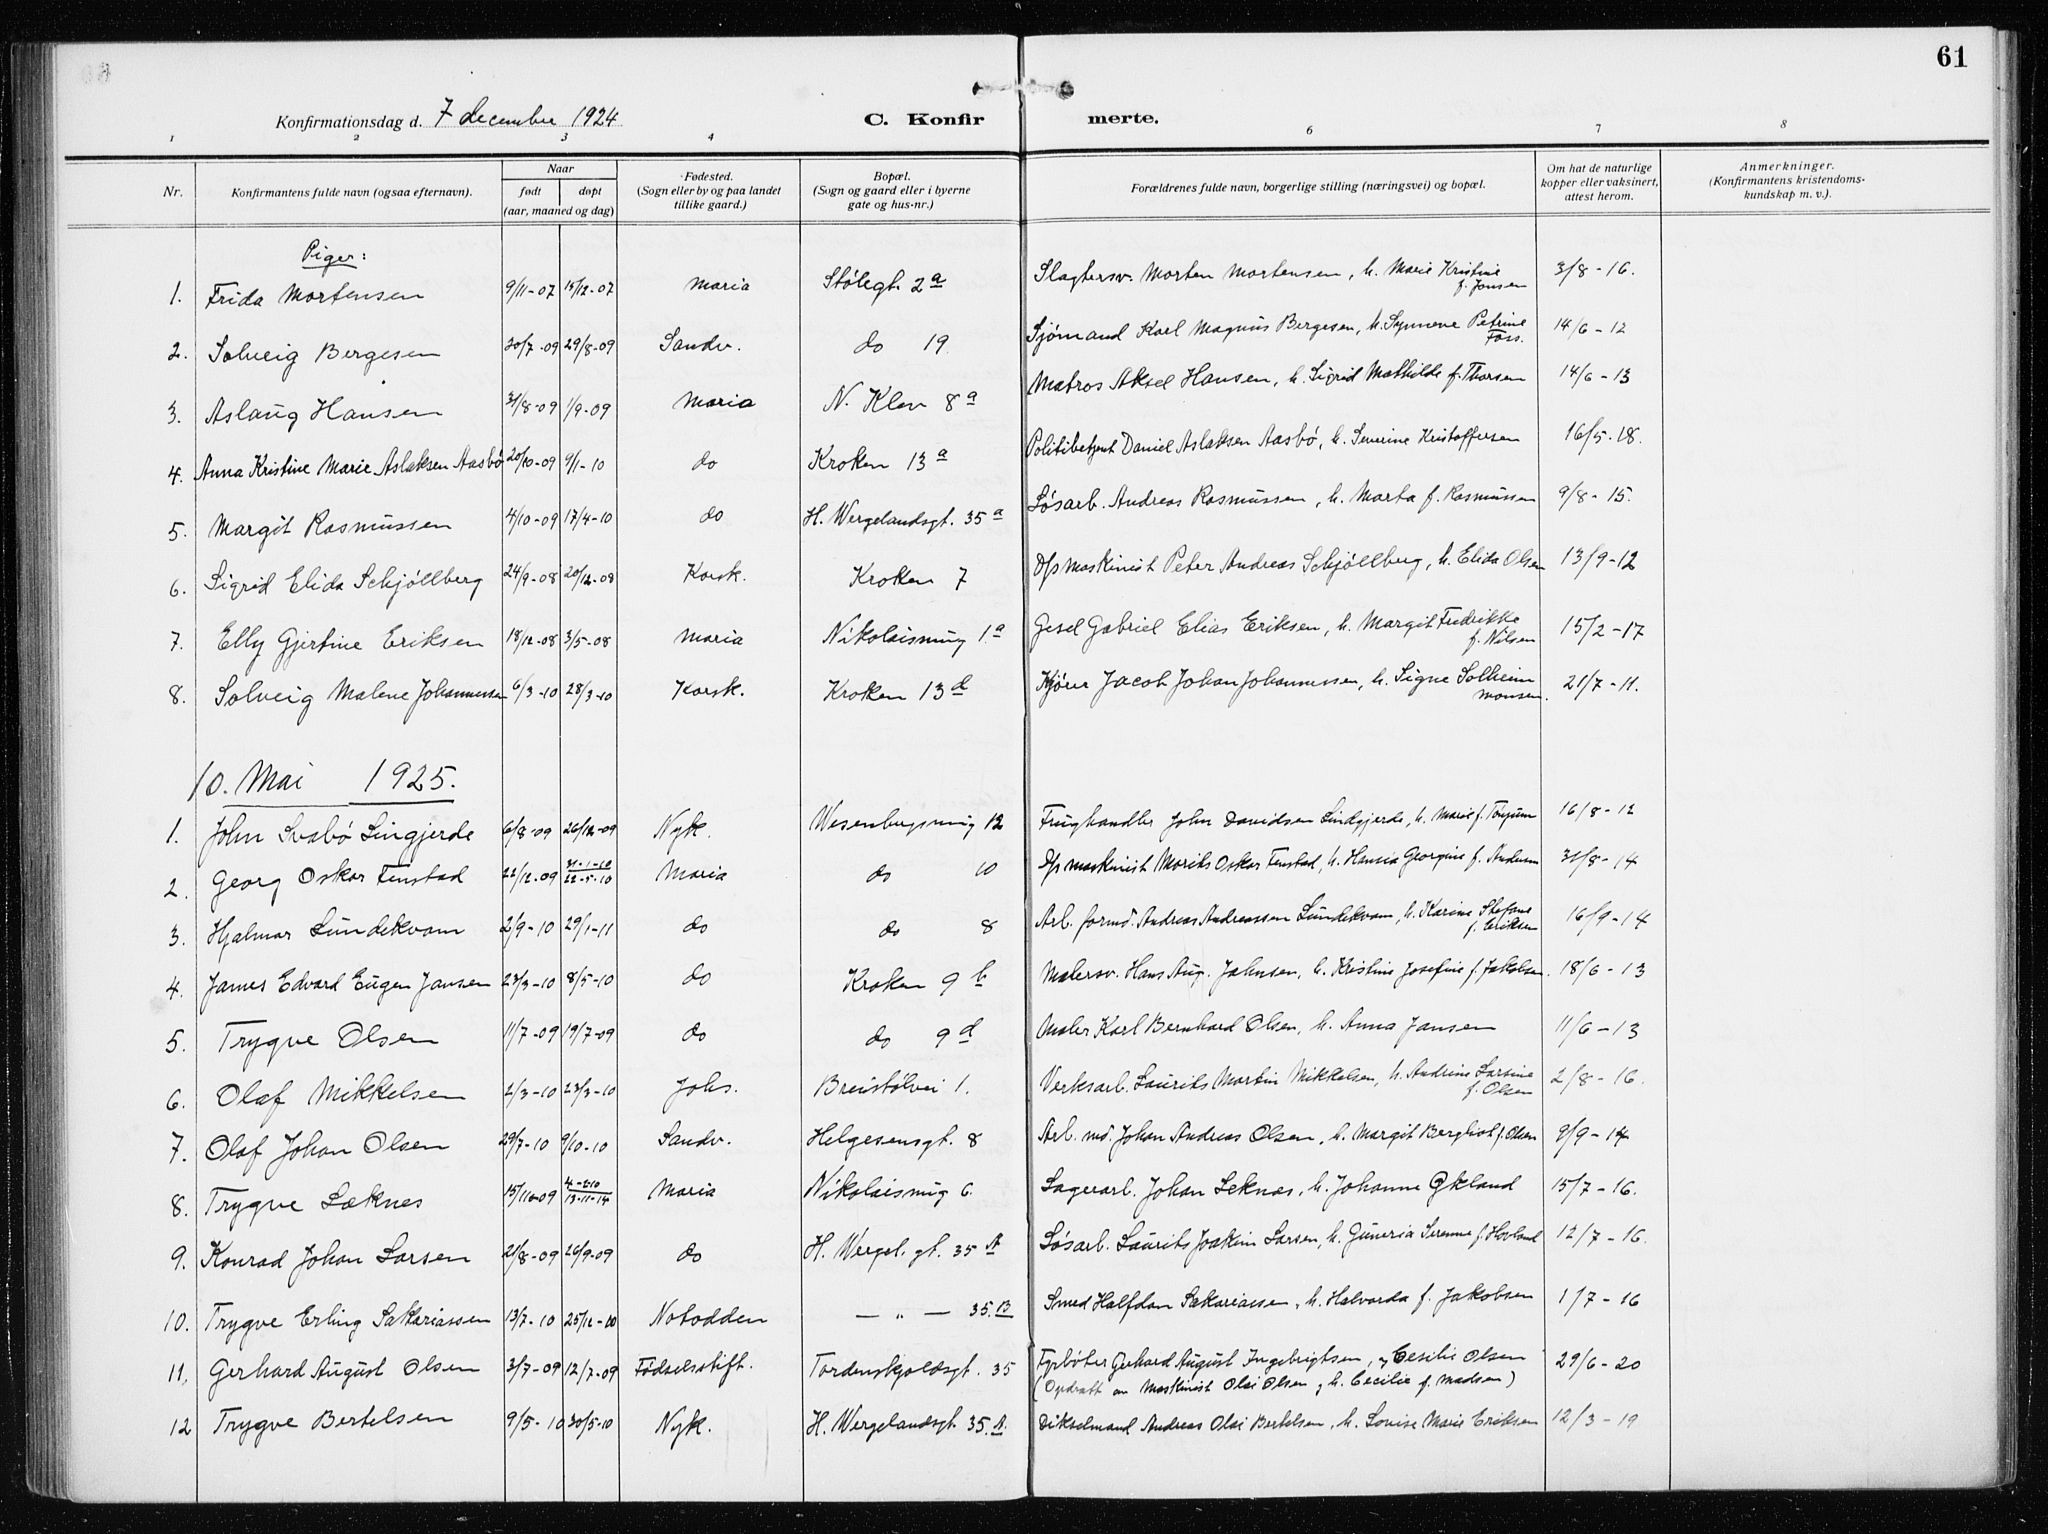 61
Konfirmationsdag d. 7 december 1924
C. Konfirmerte.
1 2 3 4 6 7 8
Nr. Konfirmantens fulde navn (ogsaa efternavn). Naar født døpt (aar, maaned og dag) Fødested. (Sogn eller by og paa landet tillike gaard.) Bopæl. (Sogn og gaard eller i byerne gate og hus-nr.) Forældrenes fulde navn, borgerlige stilling (næringsvei) og bopæl. Om hat de naturlige kopper eller vaksinert, attest herom. Anmerkninger. (Konfirmantens kristendomskundskap m. v.).
Piger:
1. Frida Mortensen 9/11-07 15/12-07 Maria Stølegt. 2a Slagtersv. Morten Mortensen, h. Marie Kristine f. Jansen 3/8-16.
2. Solveig Bergesen 20/7-09 29/8-09 Sandv. do 19. Sjømand Karl Magnus Bergesen, h. Synneve Petrine Foss. 14/6-12
3. Aslaug Hansen 31/8-09 1/9-09 Maria N. Klev 8a Matros Aksel Hansen, h. Sigrid Mathilde f. Thorsen 14/6-13
4. Anna Kristine Marie Aslaksen Aasbø 20/10-09 9/1-10 do Kroken 13a Politibetjent Daniel Aslaksen Aasbø, h. Severine Kristoffersen 16/5-18.
5. Margit Rasmussen 4/10-09 17/4-10 do H. Wergelandsgt. 35a Løsarb. Andreas Rasmussen, h. Marta f. Rasmussen 9/8-15.
6. Sigrid Elida Schjøllberg 24/9-08 20/12-08 Korsk. Kroken 7 D/s maskinist Peter Andreas Schjøllberg, h. Elida Olsen 13/9-12
7. Elly Gjertine Eriksen 18/12-08 3/5-08 Maria Nikolaismug 1a Gabriel Elias Eriksen, h. Margit Fredrikke f. Nilsen 15/2-17
8. Solveig Malene Johannessen 6/3-10 28/3-10 Korsk. Kroken 13d Kjører Jacob Johan Johannessen, h. Signe Solheim Monsen. 21/7-11.
10. Mai 1925.
1. John Svabø Lingjerde 6/8-09 26/12-09 Nyk. Wesenbergsmug 12 John Davidsen Lindgjerde, h. Marie f. 16/8-12
2. Georg Oskar Fenstad 22/12-09 31-1-10 22-5-10 Maria do 10 D/s maskinist Oskar Fenstad, h. Hansia Georgine f. Andersen 31/8-14
3. Hjalmar Lundekvam 2/9-10 29/1-11 do do 8 Arb. formd. Andreas Andreassen Lundekvam, h. Karine Stefane f. Eriksen 16/9-14
4. James Edvard Eugen Jansen 23/3-10 8/5-10 do Kroken 9b Malersv. Hans Aug. Jahnsen, h. Kristine Josefine f. Jakobsen. 18/6-13
5. Trygve Olsen 11/7-09 19/7-09 do do 9d Maler Karl Bernhard Olsen, h. Anna Jansen 11/6-13
6. Olaf Mikkelsen 2/3-10 23/3-10 Johs. Breistølvei 1. Verksarb. Laurits Martin Mikkelsen, h. Andrine Larsine f. Olsen 2/8-16.
7. Olaf Johan Olsen 29/7-10 9/10-10 Sandv. Helgesensgt. 8 Arb. md. Johan Andreas Olsen, h. Margit Berghot f. Olsen 9/9-14
8. Trygve Leknes 15/11-09 13-11-14 Maria Nikolaismug 6. Lagerarb. Johan Leknes, h. Johanne Økland 15/7-16.
9. Konrad Johan Larsen 21/8-09 26/9-09 do H. Wergel. gt. 35 A Løsarb. Laurits Joakim Larsen, h. Guneria Serenne f. Hovland 12/7-16.
10. Trygve Erling Sakariassen 13/7-10 25/12-10 Notodden — „ — 35.B Smed Halfdan Sakariassen, h. Halvarda f. Jakobsen 1/7-16
11. Gerhard August Olsen 3/7-09 12/7-09 Fødselsstift. Tordenskjoldsgt. 35 Fyrbøter Gerhard August Ingebrigtsen, og Cesilie Olsen (Opdratt av Maskinist Olai Olsen og h. Cecilie f. Madsen) 29/6-20
12 Trygve Bertelsen 9/5-10 30/5-10 Nyk. H. Wergelandsgt. 35.A. Dikselmand Andreas Olai Bertelsen, h. Lovise Marie Eriksen 12/3-19